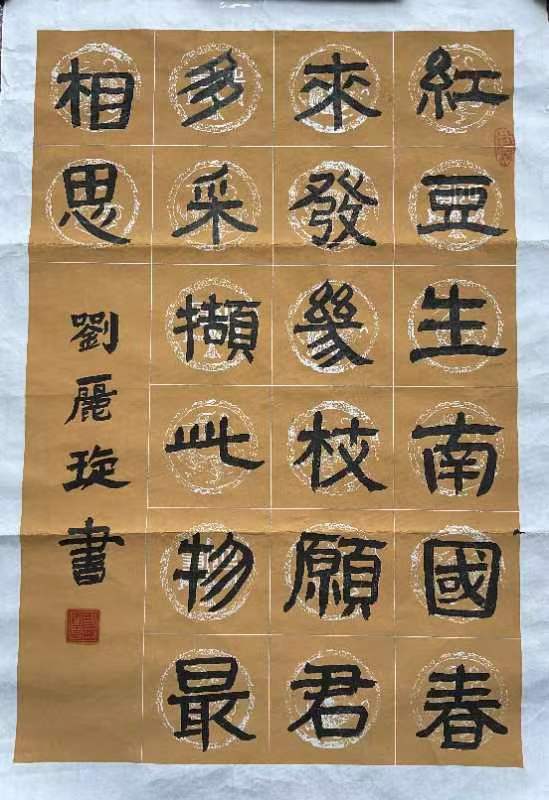 紅豆生南國春
來發幾枝願君
多采擷此物最
相思
劉麗琁書